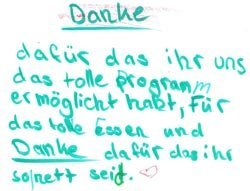 Danke
dafür das ihr uns
das tolle Programm
ermöglicht habt, Für
das tolle Essen und
Danke dafür das ihr
so nett seid.